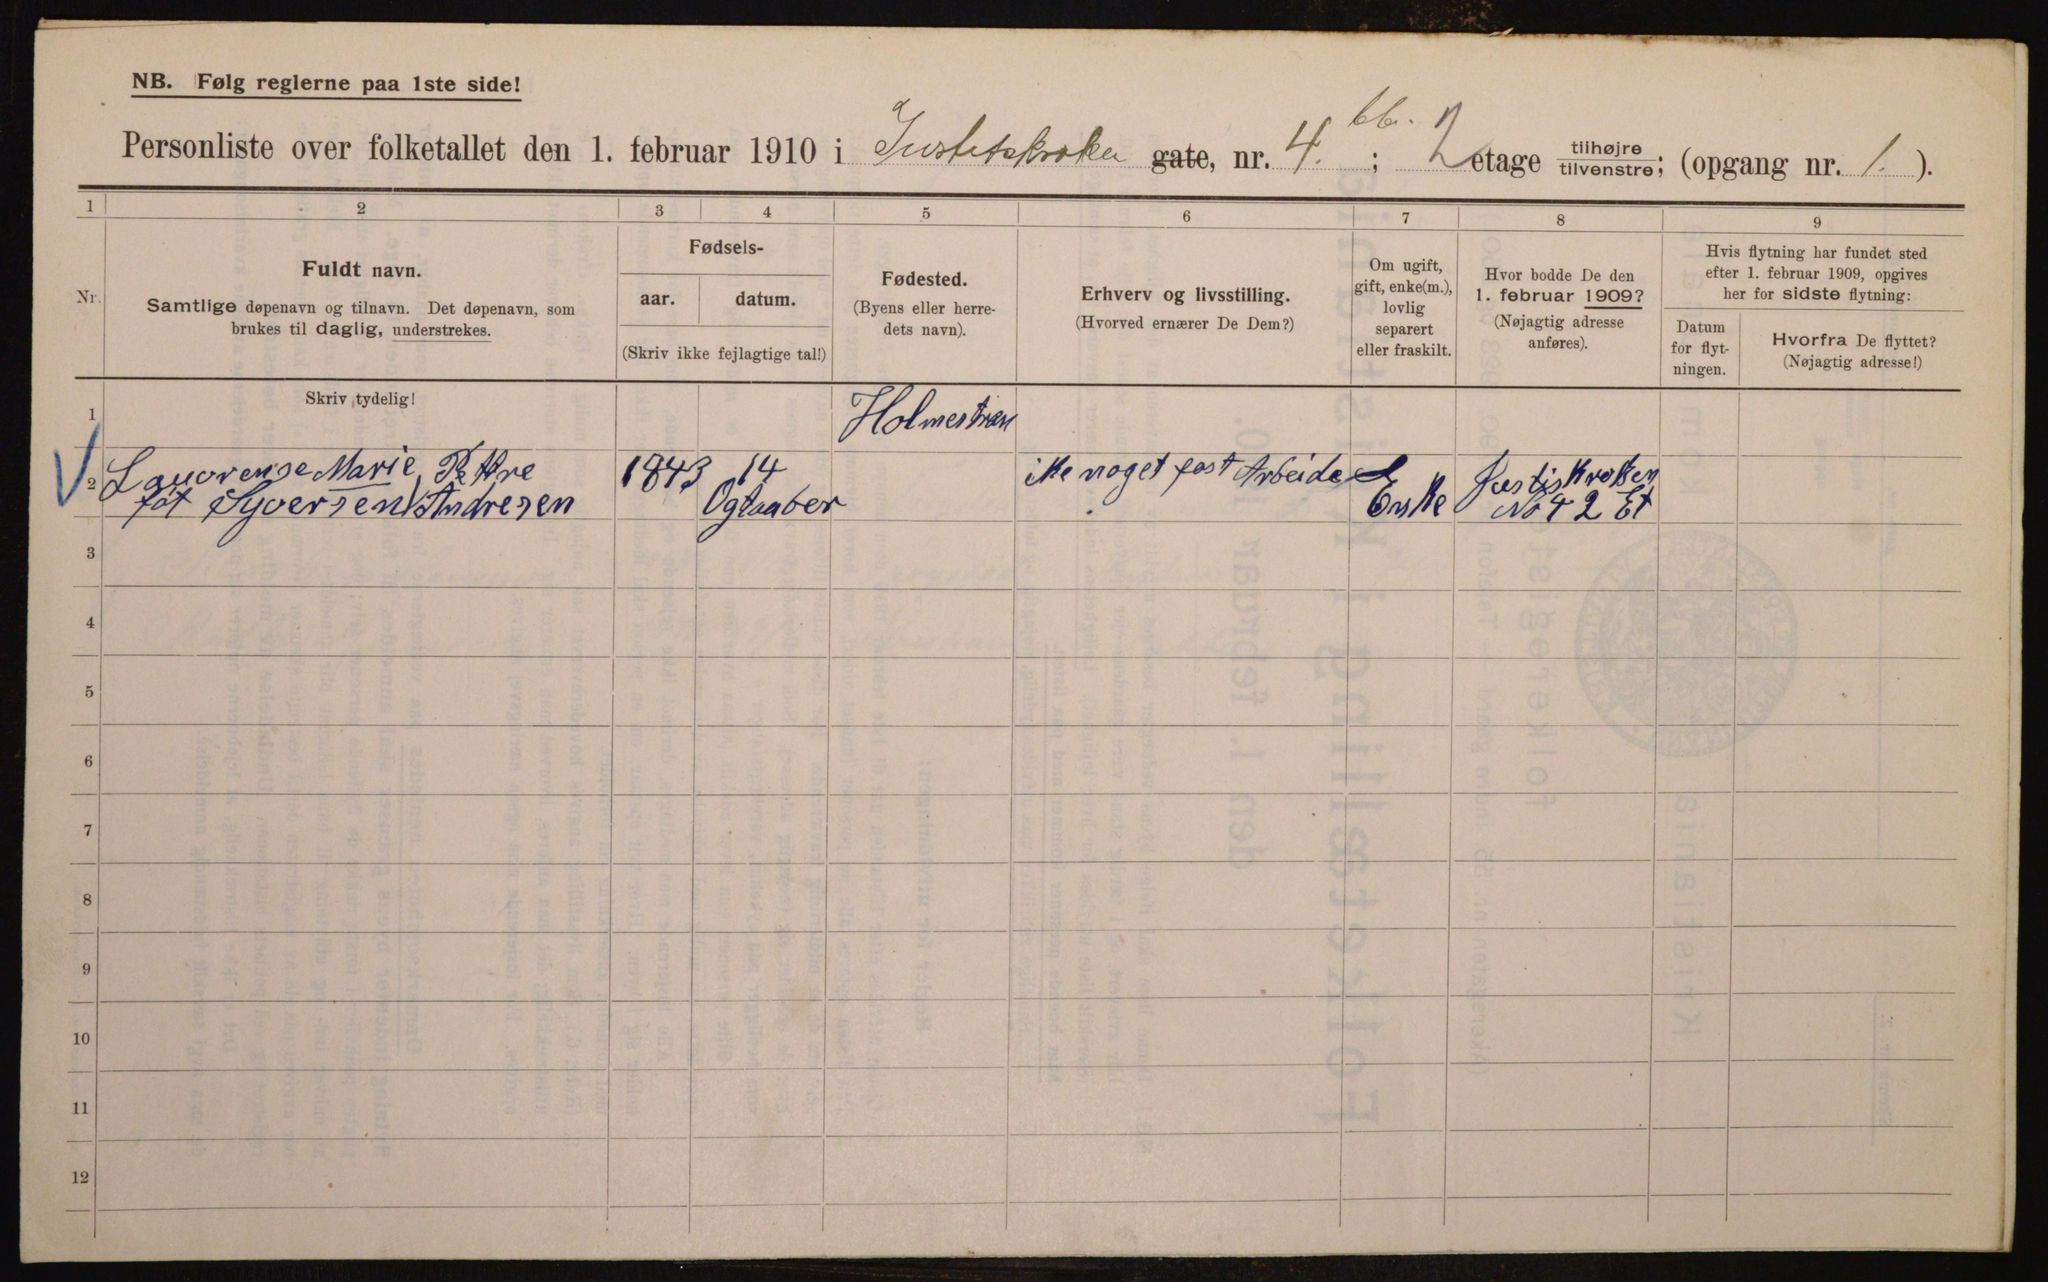 NB. Følg reglerne paa 1ste side!
Personliste over folketallet den 1. februar 1910 i Justitskroken gate, nr. 4. bb. ; 2 etage tilhøjre tilvenstre; (opgang nr. 1. ).
1 2 3 4 5 6 7 8 9
Nr.
Fuldt navn.
Samtlige døpenavn og tilnavn. Det døpenavn, som
brukes til daglig, understrekes.
Fødsels-
aar. datum.
(Skriv ikke fejlagtige tal!)
Fødested.
(Byens eller herre-
dets navn).
Erhverv og livsstilling.
(Hvorved ernærer De Dem?)
Om ugift,
gift, enke(m.),
lovlig
separert
eller fraskilt.
Hvor bodde De den
1. februar 1909?
(Nøjagtig adresse
anføres).
Hvis flytning har fundet sted
efter 1. februar 1909, opgives
her for sidste flytning:
Datum
for flyt-
ningen.
Hvorfra De flyttet?
(Nøjagtig adresse!)
Skriv tydelig!
1 Holmestran
2 Lauorense Marie Pettre 1843 14 ike noget fast Arbeide Justiskroken
føt Syversen Andresen Ogtoaber Enke No 4 2 Et
3
4
5
6
7
8
9
10
11
12